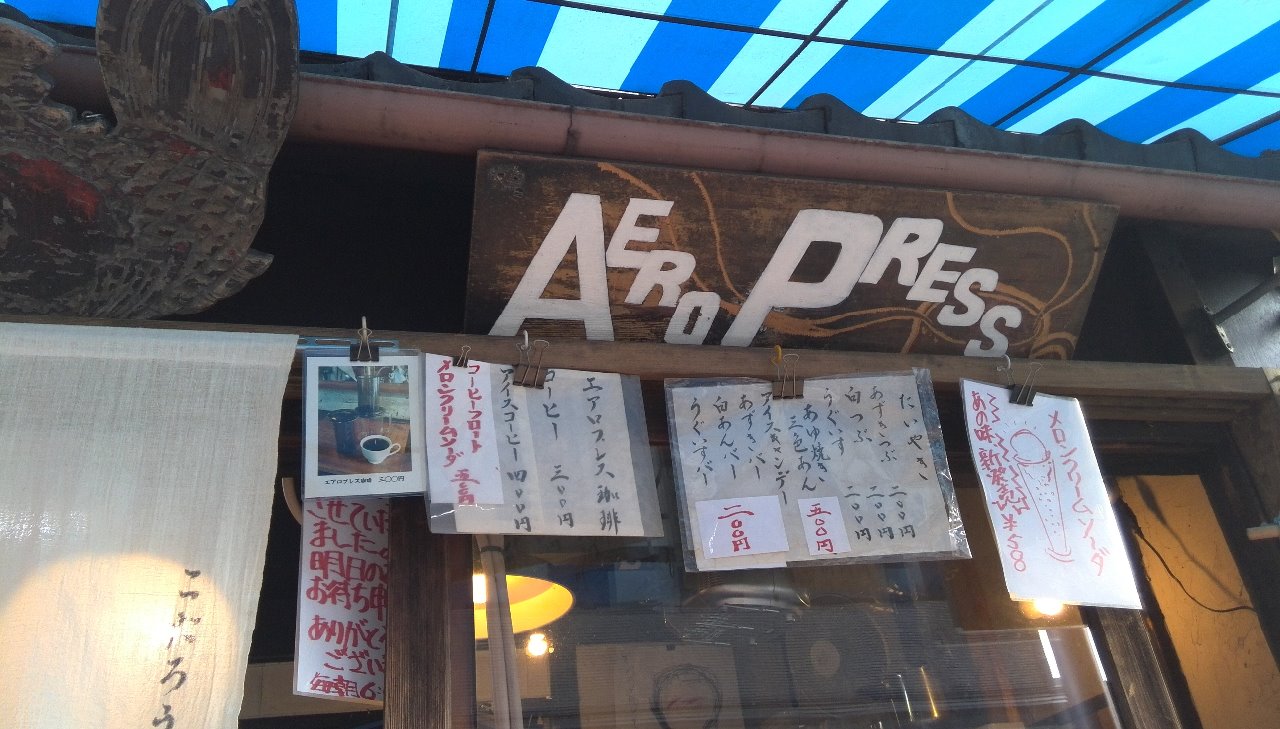 AERO PRESS
エアロプレス珈琲 300円
いせてい
ました
明日の
お待ち申
ありがとう
ござい
毎朝6:
コーヒーフロート
メロンクリームソーダ 五〇〇円
エアロプレス 珈琲
コーヒー 三〇〇円
アイスコーヒー 四〇〇円
たいやき
あずきつぶ 二〇〇円
白つぶ 二〇〇円
うぐいす 二〇〇円
あゆ焼き
三色あん 五〇〇円
アイスキャンデー
あずきバー
白あんバー 二〇〇円
うぐいすバー
メロンクリームソーダ
あの味新発売 ¥500
ろう